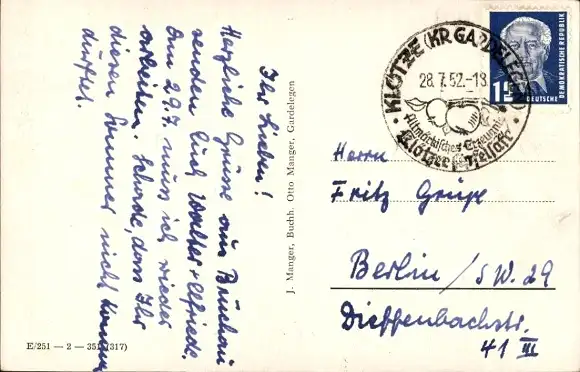 Ihr Lieben!
Herzliche Grüsse aus Brüchau
senden Euch Walter + Elfriede.
Am 29.7. muss ich wieder
arbeiten. Schade, dass Ihr
diesen Sommer nicht kommen
durftet.
E/251 — 2 — 351 (317)
J. Manger, Buchh. Otto Manger, Gardelegen
KLÖTZE (KR GARDELEGEN)
28.7.52.-18
Altmärkisches Erzeugnis
Klötzer Süßmoste
1
DEUTSCHE
DEMOKRATISCHE REPUBLIK
Herrn
Fritz
Berlin / SW. 29
Dieffenbachstr.
41 III